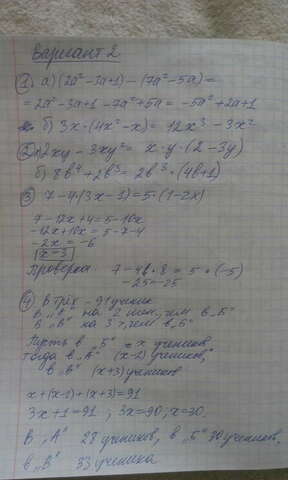 Вариант 2
1. а) (2а² - 3а + 1) - (7а² - 5а) =
= 2а² - 3а + 1 - 7а² + 5а = -5а² + 2а + 1
б) 3х · (4х² - х) = 12х³ - 3х²
2. 2ху - 3ху² = х · у · (2 - 3у)
б) 8b⁴ + 2b³ = 2b³ · (4b + 1)
3 7 - 4 · (3х - 1) = 5 · (1 - 2х)
7 - 12х + 4 = 5 - 10х
-12х + 10х = 5 - 7 - 4
-2х = -6
х = 3
Проверка 7 - 4 · 8 = 5 · (-5)
-25 = -25
4 В трёх - 91 ученик
в "А" на 2 мен., чем в "Б"
в "В" на 3 >, чем в "Б"
Пусть в "Б" - х учеников
тогда в "А" (х-2) учеников,
в "В" (х+3) учеников
х + (х-2) + (х+3) = 91
3х + 1 = 91 ; 3х = 90 ; х = 30.
В "А" 28 учеников, в "Б" 30 учеников,
в "В" 33 ученика